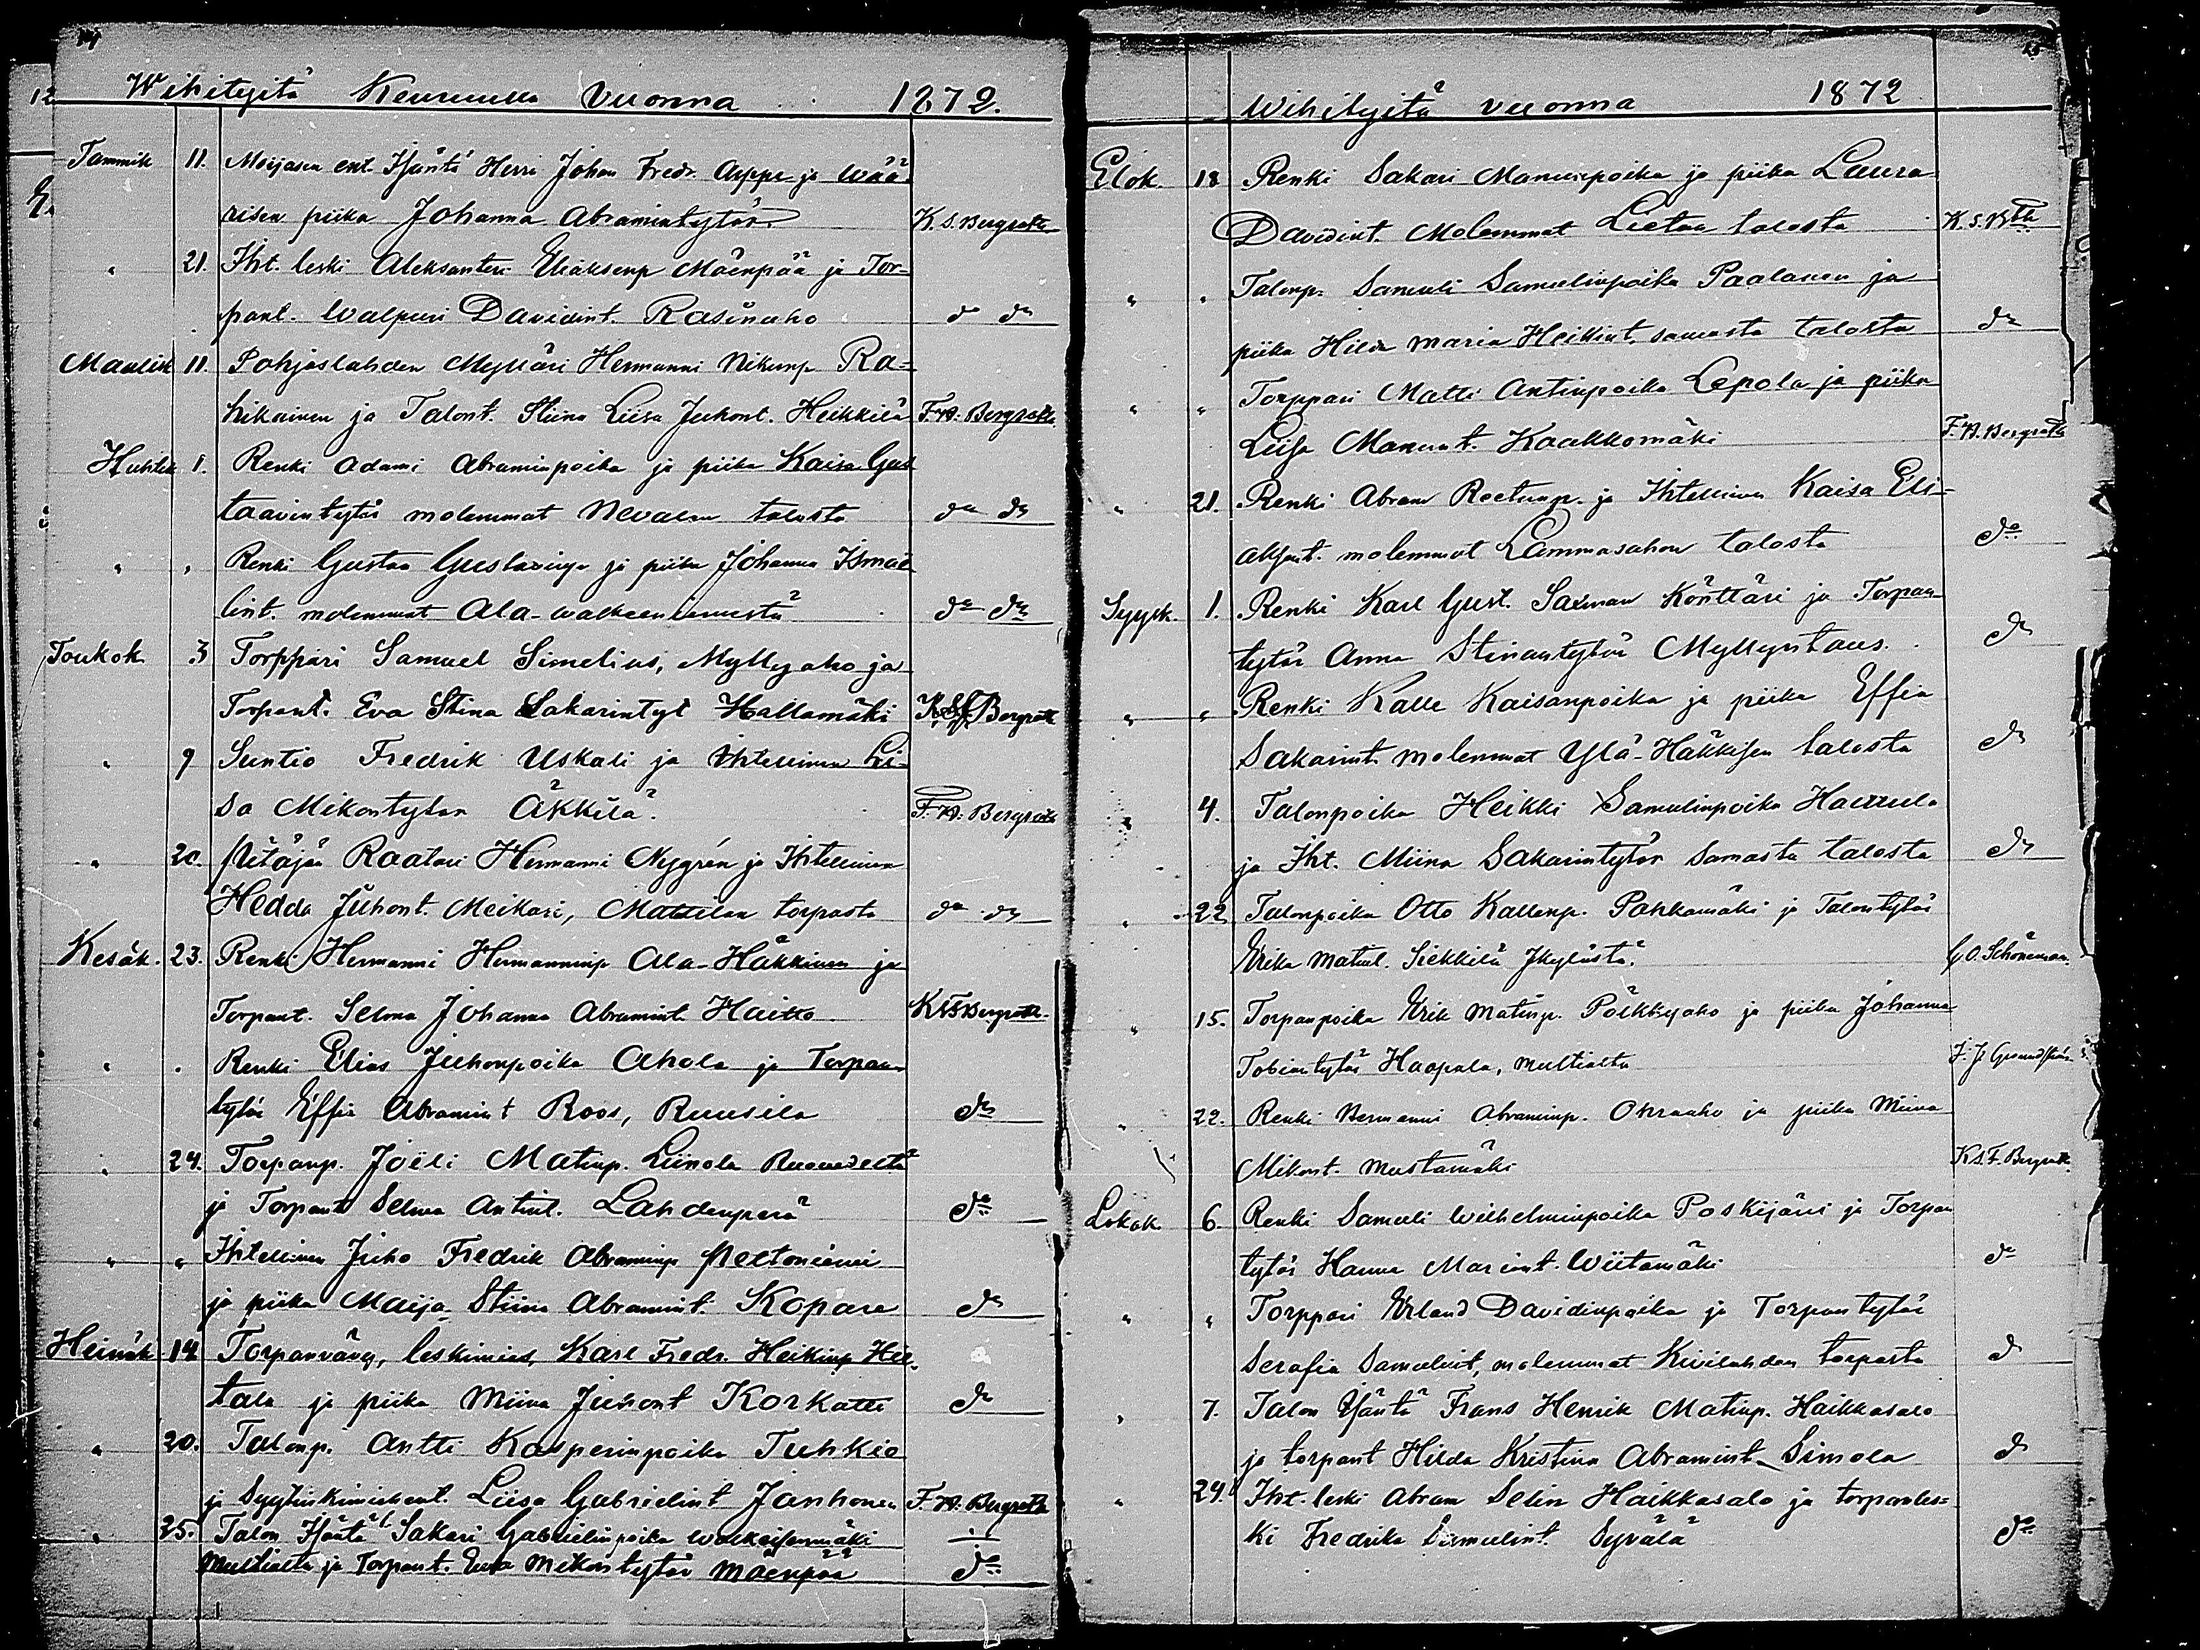 14
Wihityitä Keuruulla vuonna 1872.
Tammik 11. Morjasen ent. Isäntä Herri Johan Fredr. Arppe ja Wää-
risen piika Johanna Abramintytär. K. S. Bergroth
" 21. Iht. leski Aleksanteri Eliaksenp Mäenpää ja Tor-
pant. Walpuri Davidint. Rasinaho do do
Maalisk 11. Pohjaslahden Mylläri Hermanni Nikunp Ra-
hikainen ja Talont. Stiina Liisa Juhont. Heikkilä F. W. Bergroth
Huhtik 1. Renki Adami Abraminpoika ja piika Kaisa Gus
taavintytär molemmat Nevalan talosta do do
" " Renki Gustaa Gustavinp ja piika Johanna Ismae
lint. molemmat Ala-Walkeeniemestä do do
Toukok 3 Torppari Samuel Simelius, Myllyaho ja
Torpant. Eva Stina Sakarintyt Hallamäki K. S. F. Bergroth
" 9 Suntio Fredrik Uskali ja Ihtellinen Li-
sa Mikontytär Äkkilä. F. W. Bergroth
" 20. Pitäjän Raatari Hermanni Nygrén ja Ihtellinen
Hedda Juhont. Meikari, Mattilan torpasta do do
Kesäk. 23. Renki Hermanni Hermanninp Ala-Häkkinen ja
Torpant. Selma Johanna Abramint. Haitto K. S. F. Bergroth
" " Renki Elias Juhonpoika Ahola ja Torpan
tytär Effia Abramint Roos, Ruusila do
" 24. Torpanp. Joeli Matinp. Liinola Ruovedeltä
ja Torpant Selma Antint. Lahdenperä do
" " Ihtellinen Juho Fredrik Abraminp Peltoniemi
ja piika Maija Stiina Abramint Kopare do
Heinäk 14 Torpanväry, leskimies, Karl Fredr. Heikinp Hie-
tala ja piika Miina Juhont Korkatti do
" 20. Talonp. Antti Kasperinpoika Tuhkio
ja Syytinkimiehent. Liisa Gabrielint Janhonen F. W. Bergroth
" 25. Talon Isäntä Sakari Gabrielinpoika Walkeisenmäki
Multialta ja Torpant. Eva Mikontytär Mäenpää do
15
Wihityitä vuonna 1872
Elok 18 Renki Sakari Manuinpoika ja piika Laura
Davidint. Molemmat Lietun talosta K. S. Bth
" " Talonp. Samuli Samulinpoika Paalanen ja
piika Hilda Maria Heikint. samasta talosta do
" " Torppari Matti Antinpoika Lepola ja piika
Liisa Manunt. Kaakkomäki F. W. Bergroth
" 21. Renki Abram Reetunp. ja Ihtellinen Kaisa Eli-
aksent. molemmat Lammasahon talosta do
Syysk. 1. Renki Karl Gust. Saxman Könttäri ja Torpan
tytär Anna Stinantytär Myllyntaus. do
" " Renki Kalle Kaisanpoika ja piika Effia
Sakarint. molemmat Ylä-Häkkisen talosta do
" 4. Talonpoika Heikki Samulinpoika Haurula
ja Iht. Miina Sakarintytär Samasta talosta do
" 22 Talonpoika Otto Kallenp. Pohkamäki ja Talontytär
Erika Matint. Siekkilä Jkylästä. C. O. Schöneman.
" 15. Torpanpoika Erik Matinp. Pölkkyaho ja piika Johanna
Tobiantytär Haapala, Multialta
" 22. Renki Hermanni Abraminp. Ohraaho ja piika Miina
Mikont. Mustamäki K. S. F. Bergroth
Lokak 6. Renki Samuli Wilhelminpoika Poskijärvi ja Torpan
tytär Hanna Mariant. Wiitamäki do
" " Torppari Erland Davidinpoika ja Torpantytär
Serafia Samulint, molemmat Kivilahden torpasta do
" 7. Talon Isäntä Frans Henrik Matinp. Haikkasalo
ja torpant Hilda Kristina Abramint Simola do
" 24. Iht. leski Abram Selin Haikkasalo ja torpanles-
ki Fredrika Samulint. Syvälä do